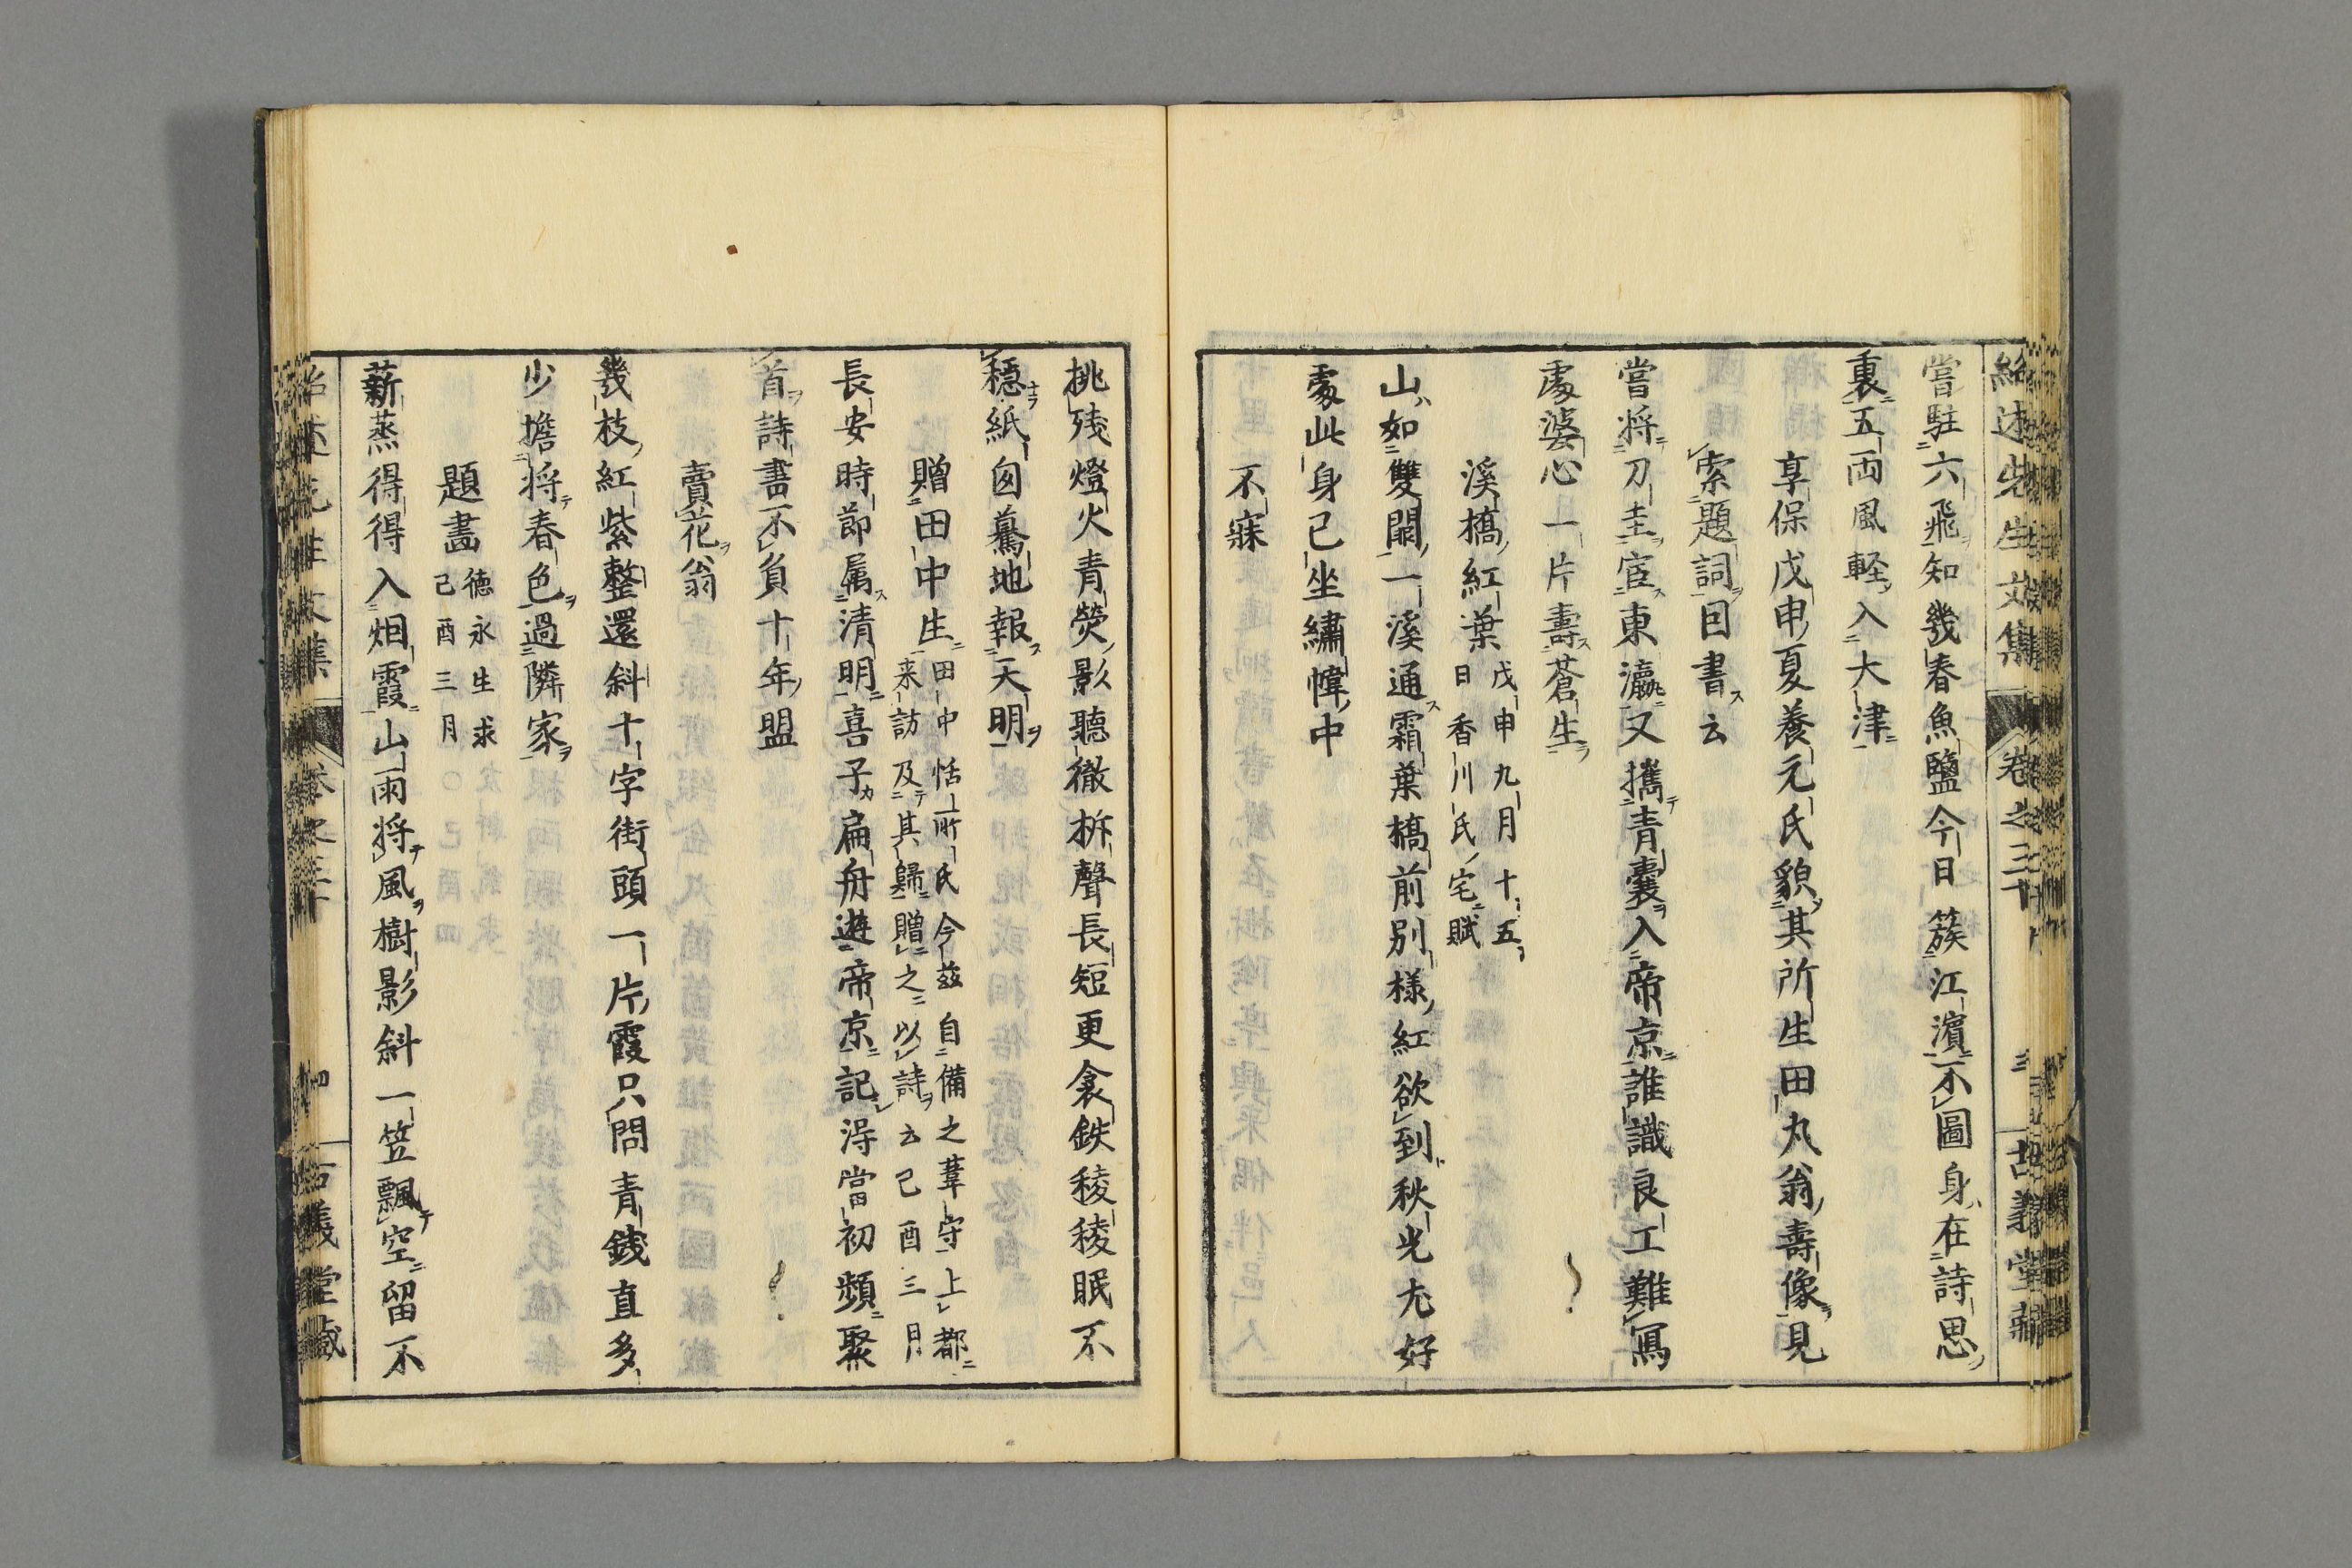 紹述先生文集 卷之三十 古義堂藏
嘗駐六飛知幾春魚鹽今日簇江濵不圖身在詩思
裏五両風軽入大津
享保戊申夏養元氏貌其所生田丸翁壽像見
索題詞因書云
嘗将刀圭宦東瀛又攜青囊入帝京誰識良工難寫
處婆心一片壽蒼生
溪橋紅葉 戊申九月十五
日香川氏宅賦
山如雙闕一溪通霜葉橋前別樣紅欲到秋光尤好
處此身已坐繡幃中
不寐
挑残燈火青熒影聽徹柝聲長短更衾鉄稜稜眠不
穏紙囪驀地報天明
贈田中生 田中恬所氏今茲自備之葦守上都
来訪及其歸贈之以詩云己酉三月
長安時節属清明喜子扁舟遊帝京記得當初頻聚
首詩書不負十年盟
賣花翁
幾枝紅紫整還斜十字街頭一片霞只問青錢直多
少擔将春色過隣家
題畵 徳永生求
己酉三月
薪蒸得得入烟霞山雨将風樹影斜一笠飄空留不
紹述先生文集 卷之三十 四 古義堂藏